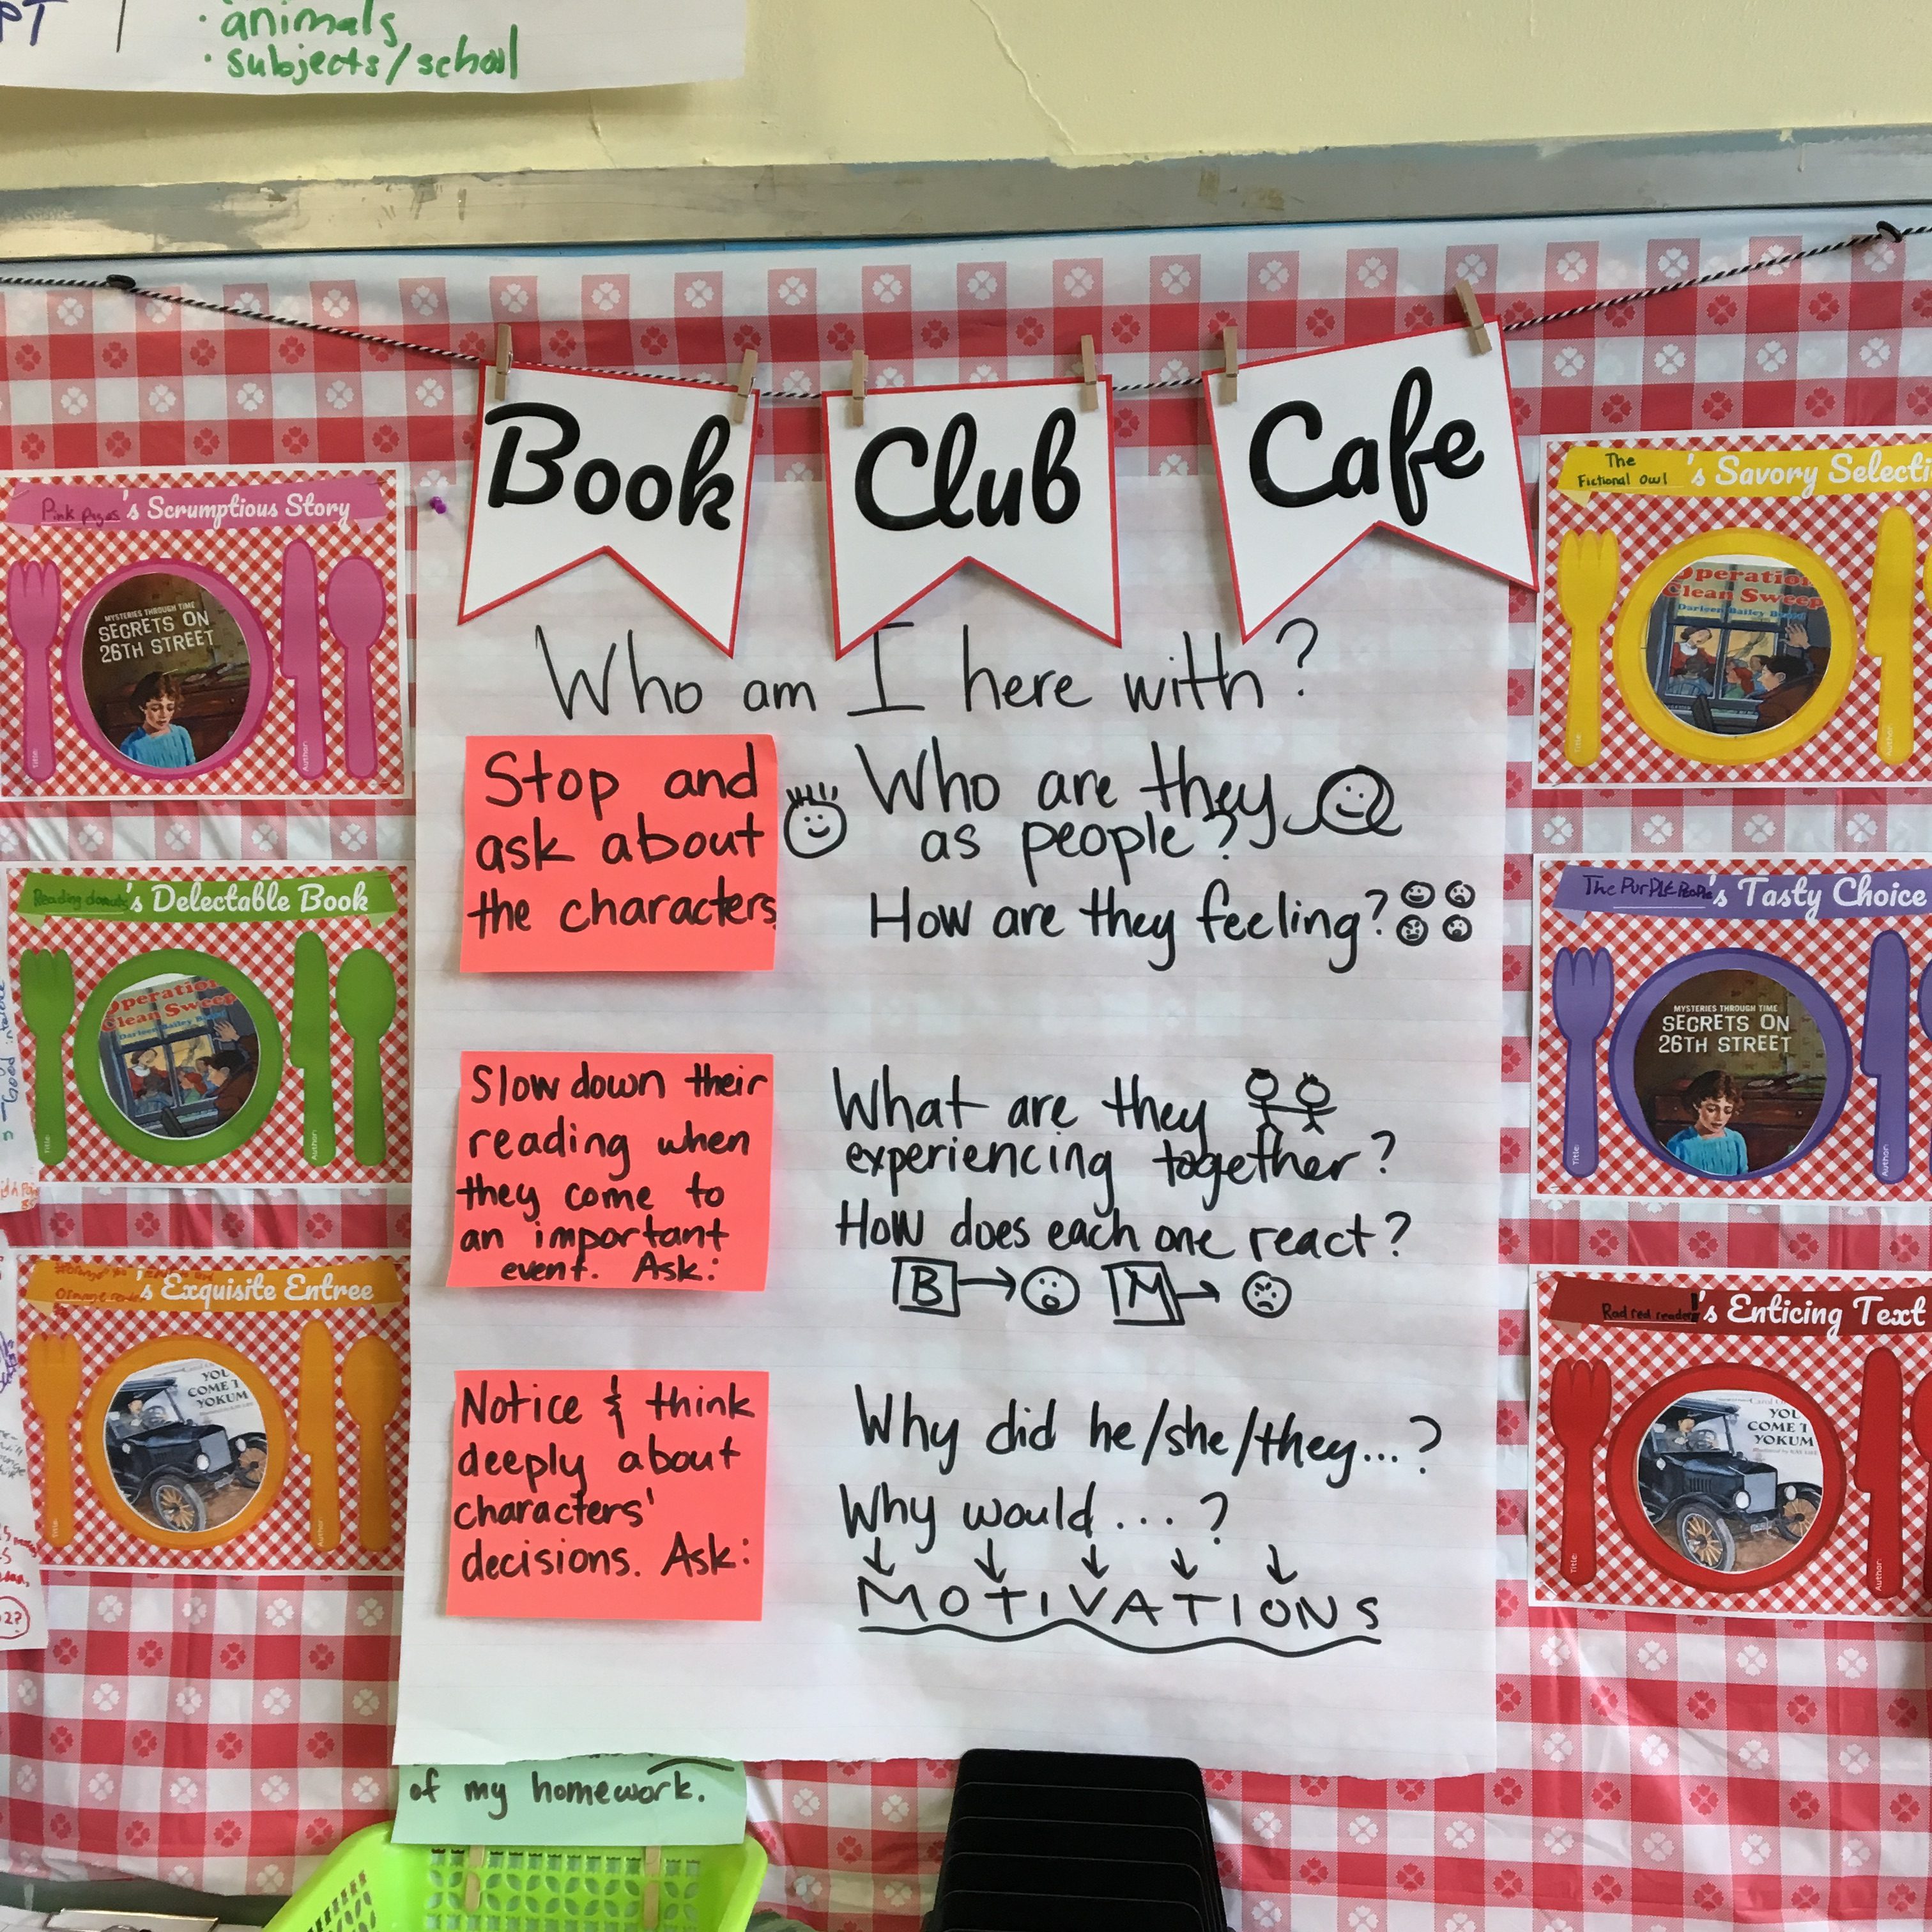 PT
· animals
· subjects/school
Book Club Cafe
Who am I here with?
Stop and
ask about
the characters
Who are they
as people?
How are they feeling?
Slow down their
reading when
they come to
an important
event. Ask:
What are they
experiencing together?
How does each one react?
B
M
Notice & think
deeply about
characters'
decisions. Ask:
Why did he/she/they...?
Why would...?
MOTIVATIONS
of my homework.
Pink pages's Scrumptious Story
MYSTERIES THROUGH TIME
SECRETS ON
26TH STREET
Title:
Author:
Reading donuts's Delectable Book
Operation
Clean Sweep
Darleen Bailey
Title:
Author:
's Exquisite Entree
YOU
COME T
YOKUM
Title:
Author:
The
Fictional Owl's Savory Selecti
Operation
Clean Sweep
Darleen Bailey
Title:
Author:
The PurPLE People's Tasty Choice
MYSTERIES THROUGH TIME
SECRETS ON
26TH STREET
Title:
Author:
Rad red readers's Enticing Text
YOU
COME T
YOKUM
Title:
Author: